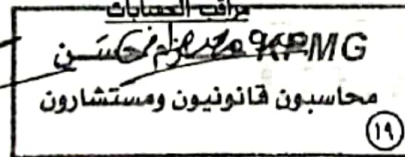 مراقب الحسابات
KPMG حازم حسن
محاسبون قانونيون ومستشارون
١٩